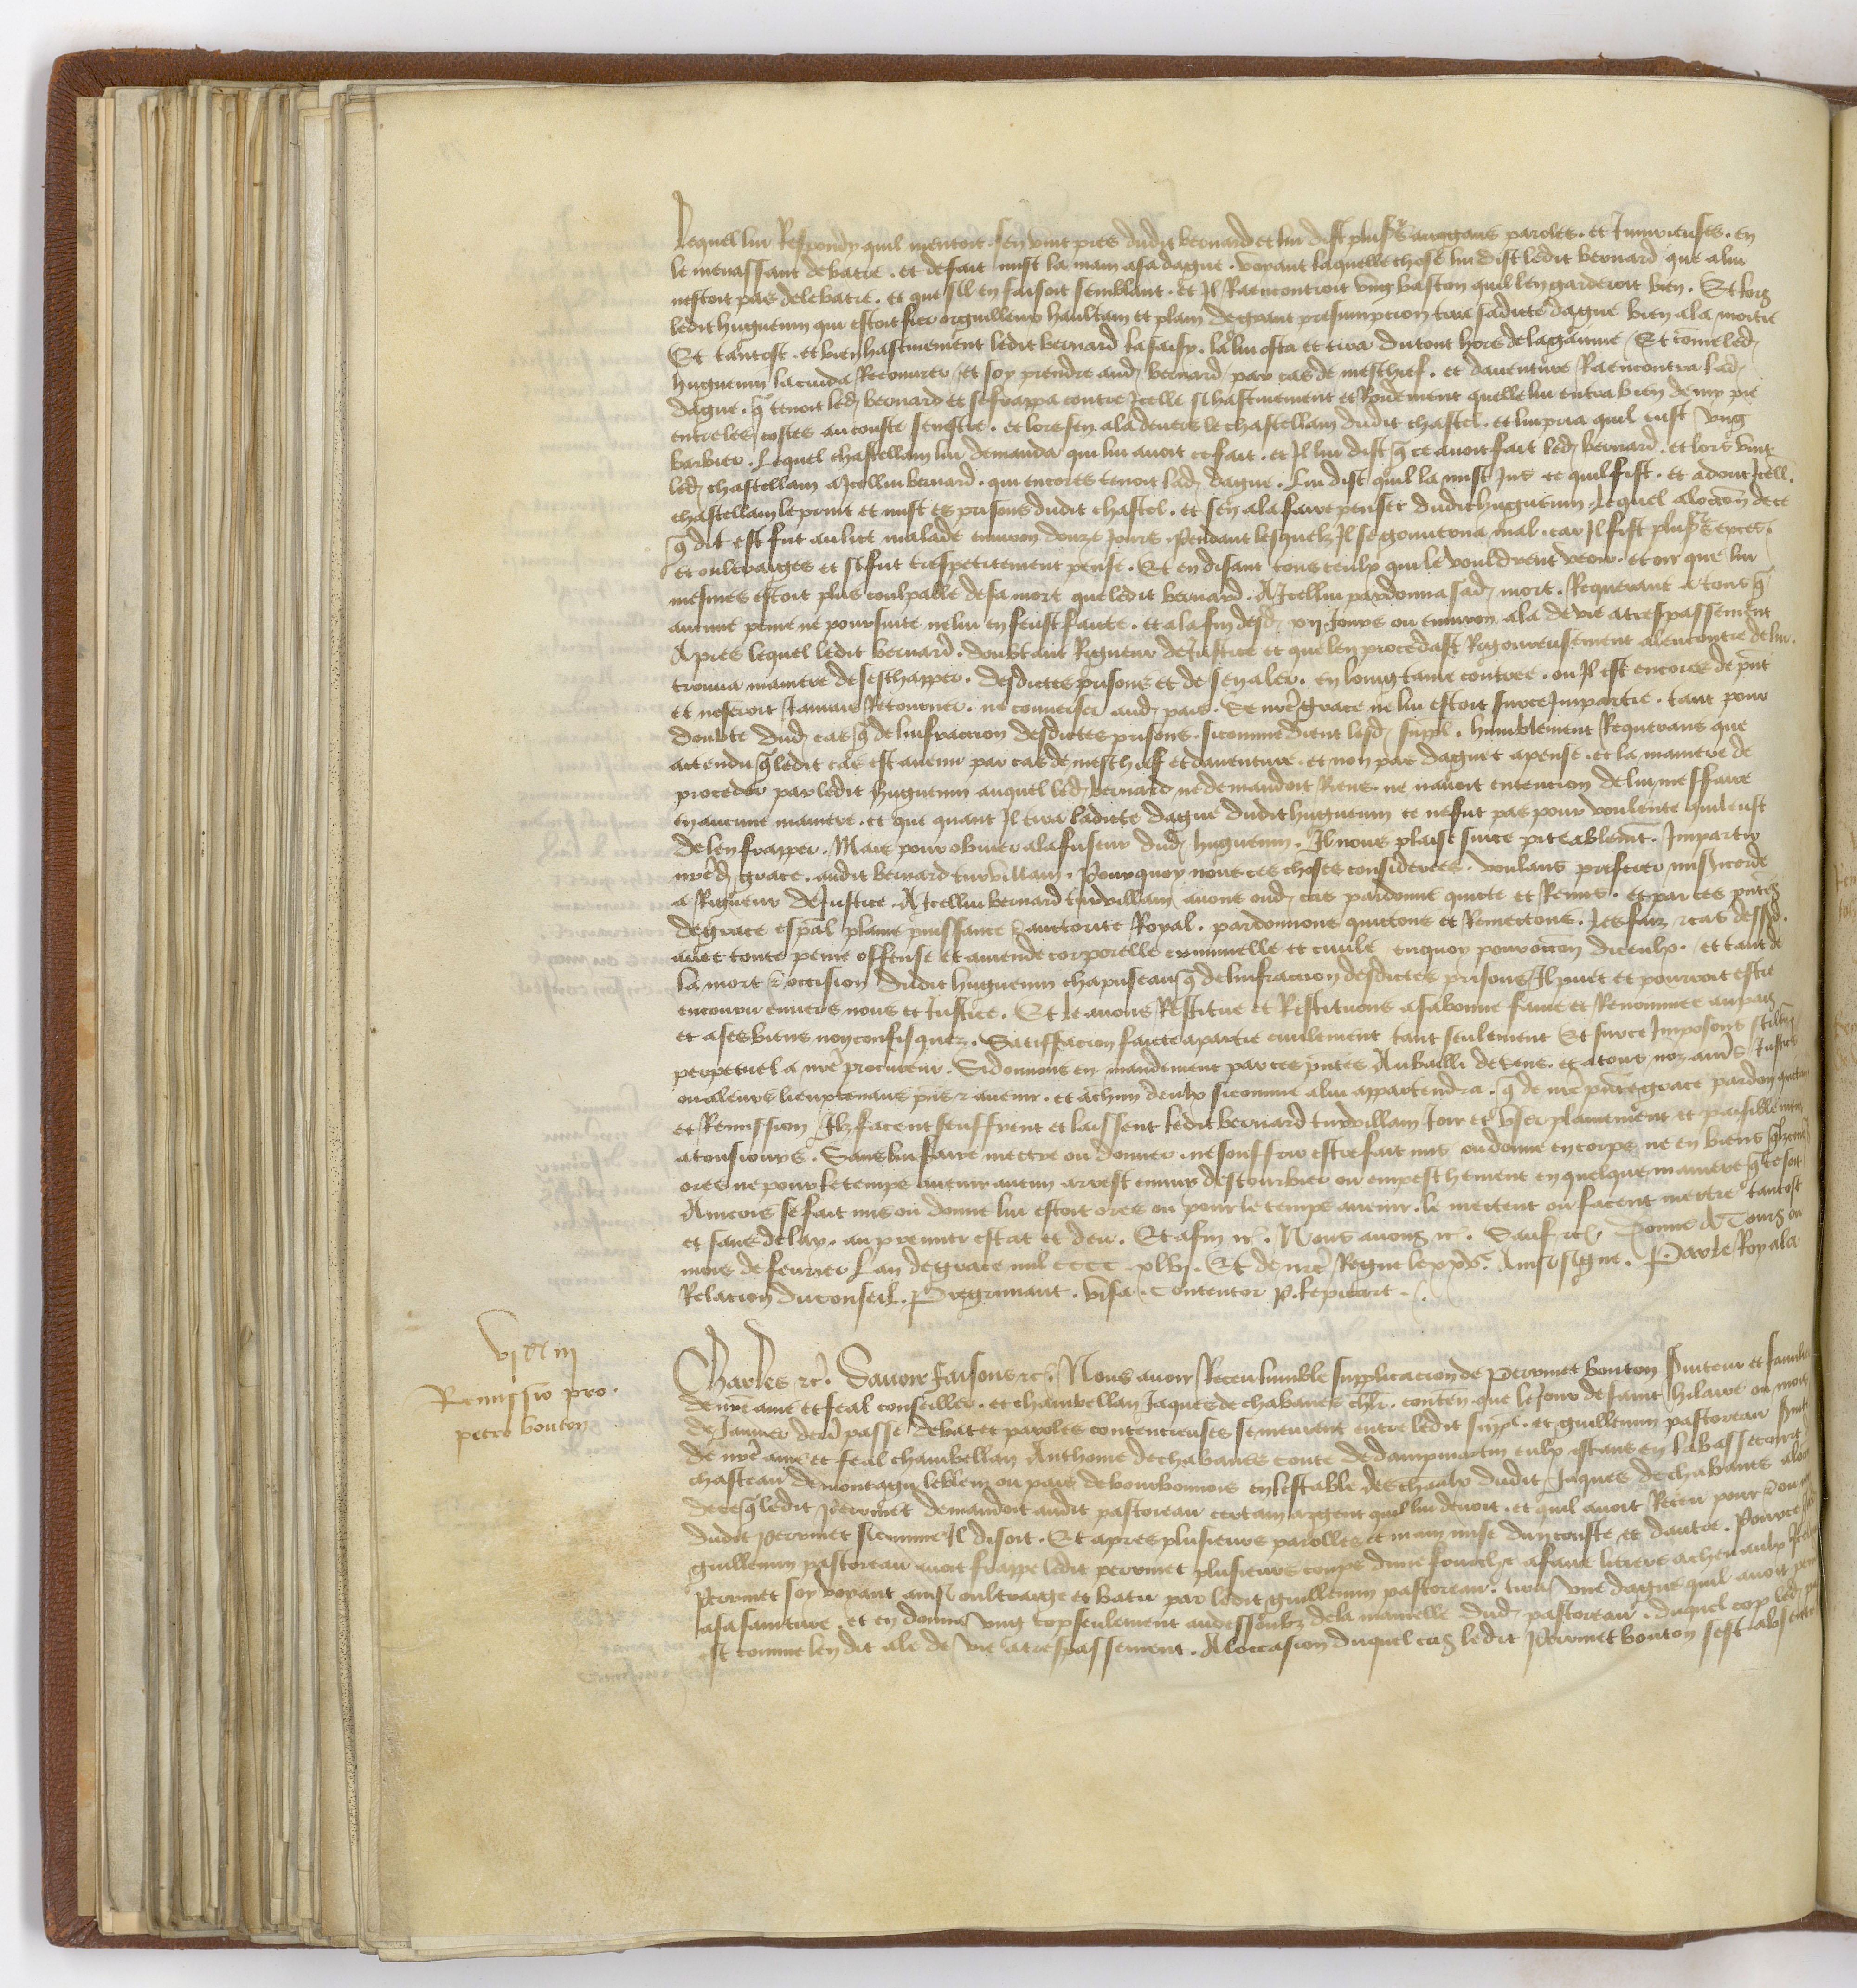 Lequel lui Respondy quil mentoit. sen vint pres dudit bernard et lui dist plusrs arrogans paroles. et Iniurieuses. en
le menassant de batre. et de fait mist la main a sa dague. voyant laquelle chose lui dist ledit bernard que a lui
nestoit pas de le batre. et que sil en faisoit semblant. et Il Raencontroit ung baston quil len garderoit bien. Et lors
ledit huguenin qui estoit fier orguilleux haultain et plain de grant presumpcion tira sadicte dague bien a la moitie
Et tantost. et bien hastivement ledit bernard la saisy. la lui osta et tira du tout hors de la gaine / Et come led
huguenin la cuida Recouvrer / et soy prendre aud bernard / par cas de meschief. et daventure Raencontra lad
dague. q tenoit led bernard et se frappa contre Icelle si hastivement et Rodement quelle lui entra bien demy pie
entre les costes au couste senestre. et lors sen ala devers le chastellain dudit chastel. et lui pria quil eust ung
barbier. Lequel chastellain lui demanda qui lui avoit ce fait. et Il lui dist q ce avoit fait led bernard. et lors vint
led chastellain a Icellui bernard. qui encores tenoit lad dague. Lui dist quil la mist Jus ce quil fist. et adonc Icell
chastellain le print et mist es prisons dudit chastel. et sen ala faire penser dudit huguenin. Lequel a loccon de ce
q dit est fut au lict malade environ douze Jours. Pendant lesquelz Il se gouverna mal. car Il fist plusrs exces
et oultraiges et si fut trespetitement pense. Et en disant tous ceulx qui le vouldrent veoir. et oir que lui
mesmes estoit plus coulpable de sa mort que ledit bernard. A Icellui pardonna sad mort. Requerant a tous q
aucune peine ne poursuite ne lui en feust faicte. et a la fin desd xij Jours ou environ ala de vie a trespassement
Apres lequel ledit bernard. doubtant Rigueur de Justice et que len procedast Rigoureusement a lencontre de lui.
trouva maniere de seschapper. desdictes prisons et de sen aler. en loingtaine contree. ou Il est encores de pnt
et noseroit Jamais Retourner. ne converser aud pais. Se nre grace ne lui estoit sur ce Impartie. tant pour
doubte dud cas q de linfraccion desdictes prisons. sicomme dient lesd suppl. humblement Requerans que
attendu q ledit cas est avenu par cas de meschief et daventure. et non par daguet apense. et la maniere de
proceder par ledit huguenin auquel led bernard ne demandoit Riens. ne navoit entencion de lui meffaire
en aucune maniere. et que quant Il tira ladicte dague dudit huguenin ce ne fut pas pour voulente quil eust
de len frapper. Mais pour obvier a la fureur dud huguenin. Il nous plaise sur ce piteablemt. Impartir
nred grace. audit bernard turvillain. Pourquoy nous ces choses considerees. voulans preferer misericorde
a Rigueur de Justice. A Icellui bernard turvillain avons oud cas pardonne quicte et Remis. et par ces pntes
de grace espal plaine puissance & auctorite Royal. pardonnons quictons et Remectons. les faiz & cas dessd.
avec toute peine offense et amende corporelle criminelle et civile en quoy pour occon diceulx. et tant de
la mort & occision dudit huguenin chapuseau q de linfraccion desdictes prisons Il puet et pourroit estre
encouru envers nous et Justice. Et le avons Restitue et Restituons a sa bonne fame et Renommee au pais
et a ses biens non confisquez. Satiffacion faicte a partie civilement tant seulement Et sur ce Imposons silence
perpetuel a nre procureur. Si donnons en mandement par ces pntes Au bailli de sens. et a tous noz aues Justices
ou a leurs lieuxtenans pns & avenir. et achun deulx sicomme a lui appartendra. q de nre pnte grace pardon quictance
et Remission Ilz facent seuffrent et laissent ledit bernard turvillain Joir et user plainement et paisiblement
a tousiours. Sans lui faire mectre ou donner. ne souffrir estre fait mis ou donne en corps ne en biens
ores ne pour le temps avenir aucun arrest ennuy destourbier ou empeschement en quelque maniere q ce soit
Aincois se fait mis ou donne lui estoit ores ou pour le temps avenir. le mectent ou facent mectre tantost
et sans delay. au premier estat et deu. Et afin &c. Nous avons &c. Sauf &c. Donne A Tours ou
mois de fevrier Lan de grace mil cccc xlvj. Et de nre Regne le xxve. Ainsi signe. Par le Roy a la
Relacion du conseil. Pregrimaut. visa. Contentor P. le picart.
vj xx iij
Remissio pro
petro bouton
Charles &c. Savoir faisons &c. Nous avoir Receu lumble supplicacion de Perrinet bouton serviteur et familier
de nre ame et feal conseiller. et chambellan Jaques de chabannes chlr. conten. que le Jour de saint hilaire ou mois
de Janvier derr passe debat et paroles contencieuses se meurent entre ledit suppl. et guillemin pastoreau
de nre ame et feal chambellan Anthoine de chabannes conte de dampmartin eulx estans en la basse court
chasteau de montagu le blein ou pais de bourbonnois en lestable des chevaulx dudit Jaques de chabannes
de ce q ledit perrinet demandoit audit pastoreau certain argent quil lui devoit. et quil avoit Receu pour
dudit perrinet sicomme Il disoit. Et apres plusieurs parolles et main mise dun couste et dautre. Pource
guillemin pastoreau avoit frappe ledit perrinet plusieurs coups dune fourche a faire lictiere a chevaulx
Perrinet soy voyant ainsi oultraige et batu par ledit guillemin pastoreau. tira une dague quil avoit
a sa sainture. et en donna ung cop seulement au dessoubz de la mamelle dud pastoreau. duquel cop led
est comme len dit ale de vie a trespassement. A loccasion duquel cas ledit Perrinet bouton sest absente